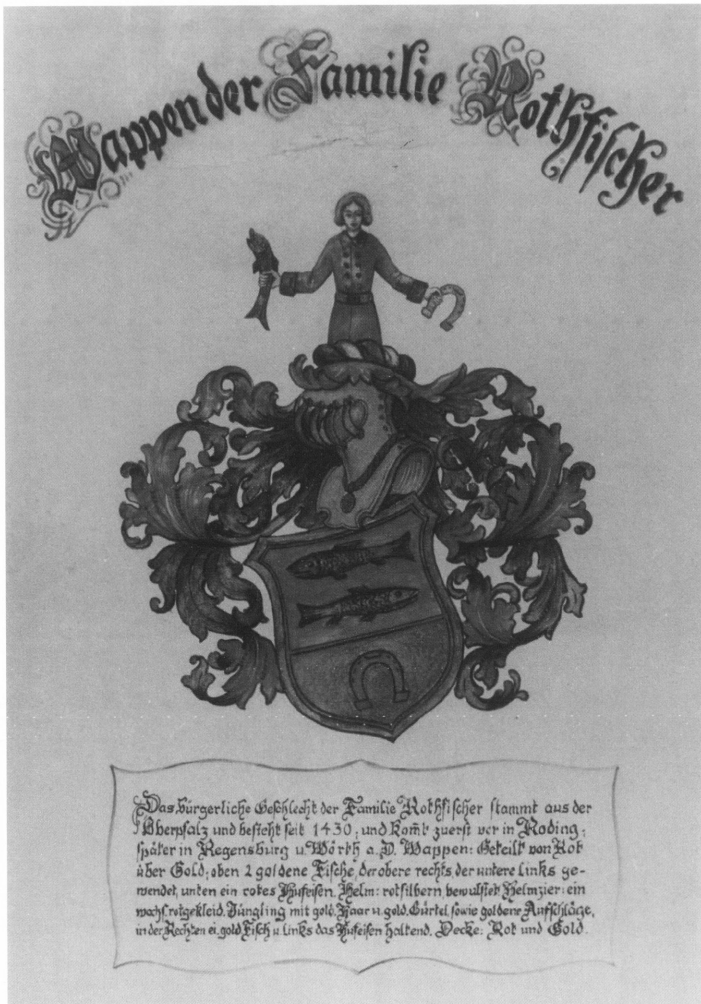 Wappen der Familie Rothfischer
Das bürgerliche Geschlecht der Familie Rothfischer stammt aus der
Oberpfalz und besteht seit 1430; und komt zuerst vor in Roding;
später in Regensburg u. Wörth a. D. Wappen: Geteilt von Rot
über Gold; oben 2 goldene Fische, der obere rechts, der untere links ge-
wendet, unten ein rotes Hufeisen. Helm: rotsilbern bewulstet Helmzier: ein
wachs. rotgekleid. Jüngling mit gold. Haar u. gold. Gürtel sowie goldene Aufschläge,
in der Rechten ei. gold Fisch u. links das Hufeisen haltend. Decke: Rot und Gold.